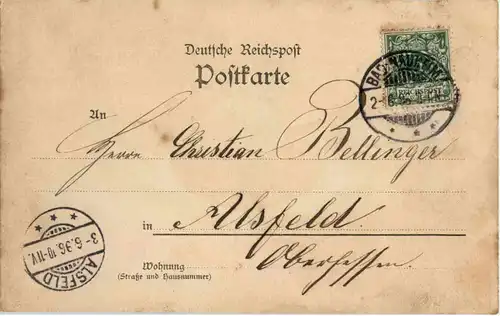 Deutsche Reichspost
Postkarte
BAD-NAUHEIM
2-6
An
Herrn Christian Bellinger
in Alsfeld.
Oberhessen.
3-6.96.10-11V.
ALSFELD
Wohnung
(Straße und Hausnummer)